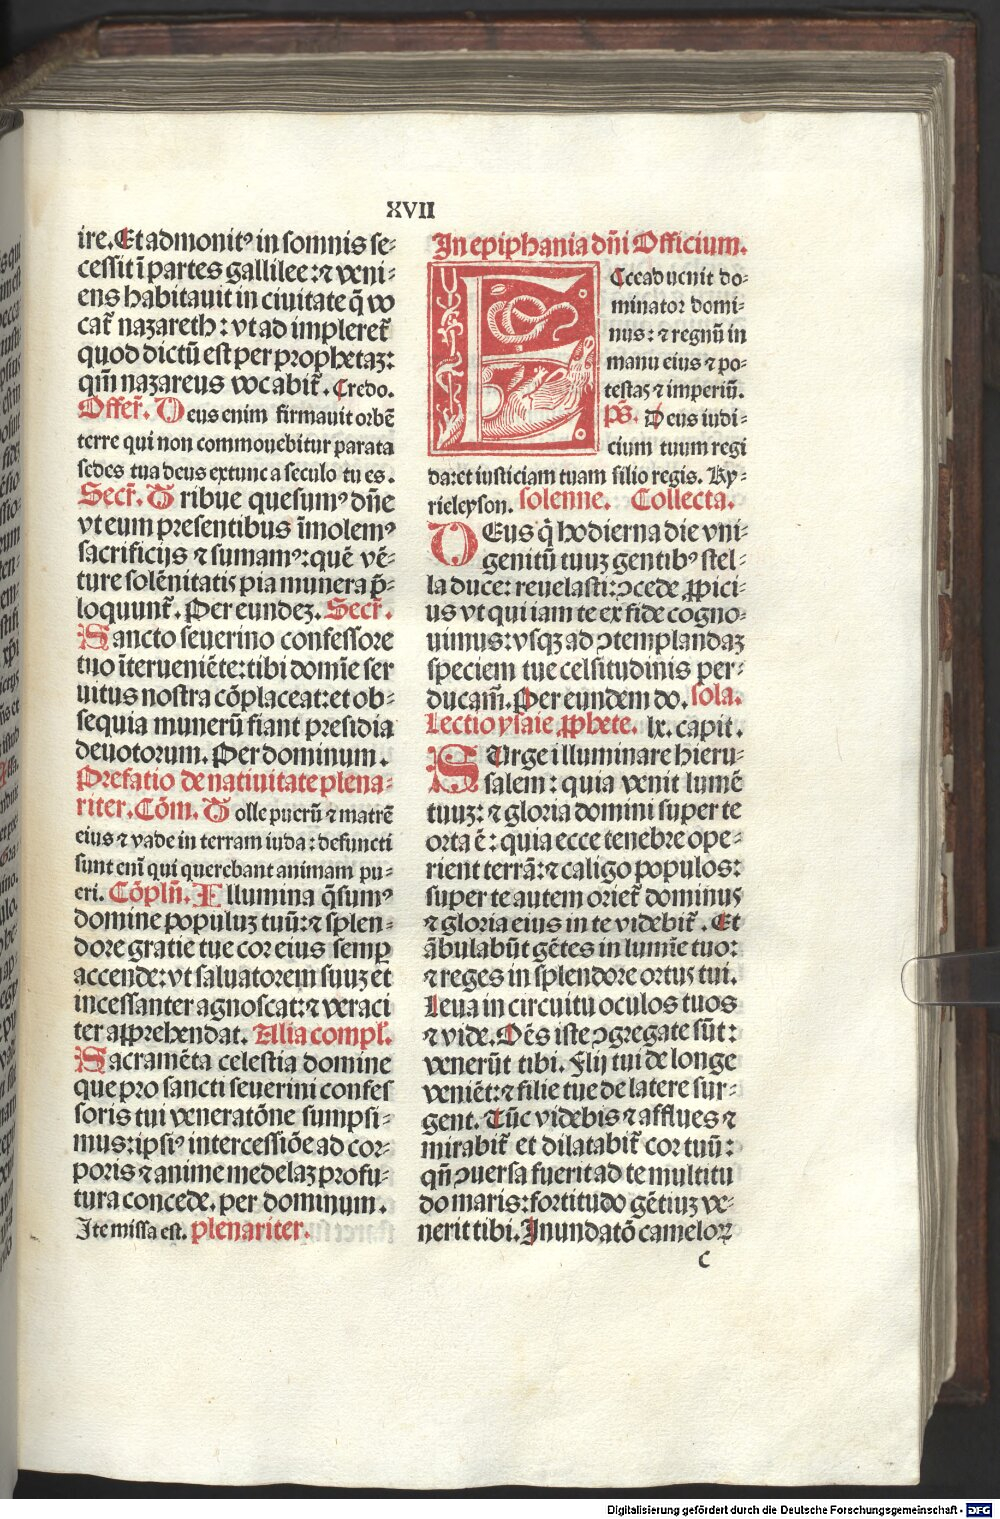 XVII
ire. Et admonitꝰ in somnis se⸗
cessit ī partes gallilee: ⁊ veni⸗
ens habitauit in ciuitate q̄ vo
cat̄ nazareth: vt ad impleret̄
quod dictū est per prophetaꝫ:
qm̄ nazareus vocabit̄. Credo.
Offer̄. Deus enim firmauit orbē
terre qui non commouebitur parata
sedes tua deus extunc a seculo tu es.
Secr̄. Tribue quesumꝰ dn̄e
vt eum presentibus īmolemꝰ
sacrificijs ⁊ sumamꝰ: quē vē⸗
ture solēnitatis pia munera p̄⸗
loquunt̄. Per eundeꝫ. Secr̄.
Sancto seuerino confessore
tuo īterueniēte: tibi domīe ser
uitus nostra cōplaceat: et ob⸗
sequia munerū fiant presidia
deuotorum. Per dominum.
Prefatio de natiuitate plena⸗
riter. Cōm. Tolle puerū ⁊ matrē
eius ⁊ vade in terram iuda: defuncti
sunt eni̅ qui querebant animam pu⸗
eri. Cōpln̄. Illumina q̄sumꝰ
domine populuꝫ tuū: ⁊ splen⸗
dore gratie tue cor eius semꝑ
accende: vt saluatorem suuꝫ et
incessanter agnoscat: ⁊ veraci
ter apprehendat. Alia compl̄.
Sacramēta celestia domine
que pro sancti seuerini confes
soris tui veneratōne sumpsi⸗
mus: ipsiꝰ intercessiōe ad cor⸗
poris ⁊ anime medelaꝫ profu⸗
tura concede. per dominum.
Ite missa est. plenariter.
In epiphania dn̄i Officium.
ECce aduenit do⸗
minator domi⸗
nus: ⁊ regnū in
manu eius ⁊ po⸗
testas ⁊ imperiū.
Ps̄. Deus iudi⸗
cium tuum regi
da: et iusticiam tuam filio regis. Ky⸗
rieleyson. solenne. Collecta.
DEus q̄ hodierna die vni⸗
genitū tuuꝫ gentibꝰ stel⸗
la duce: reuelasti: ↄcede ꝓpici⸗
us vt qui iam te ex fide cogno⸗
uimus: vsqꝫ ad ↄtemplandaꝫ
speciem tue celsitudinis per⸗
ducam̄. Per eundem do. sola.
Lectio ysaie ꝓphete. lx. capit.
SUrge illuminare hieru⸗
salem: quia venit lumē
tuuꝫ: ⁊ gloria domini super te
orta ē: quia ecce tenebre ope⸗
rient terrā: ⁊ caligo populos:
super te autem oriet̄ dominus
⁊ gloria eius in te videbit̄. Et
ābulabūt gētes in lumīe tuo:
⁊ reges in splendore ortus tui.
Leua in circuitu oculos tuos
⁊ vide. Oēs iste ↄgregate sūt:
venerūt tibi. Filij tui de longe
veniēt: ⁊ filie tue de latere sur⸗
gent. Tūc videbis ⁊ afflues ⁊
mirabit̄ et dilatabit̄ cor tuū:
qn̄ ↄuersa fuerit ad te multitu
do maris: fortitudo gētiuꝫ ve⸗
nerit tibi. Inundatō cameloꝝ
c
Digitalisierung gefördert durch die Deutsche Forschungsgemeinschaft - DFG